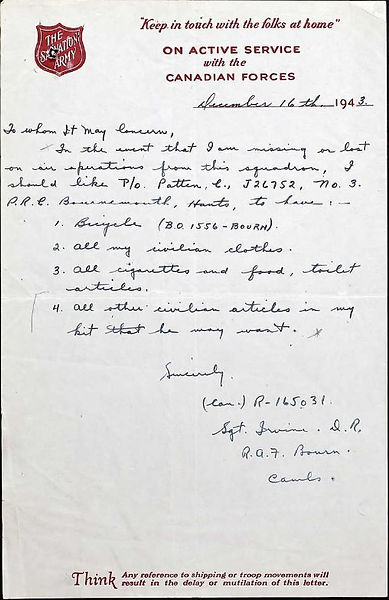 "Keep in touch with the folks at home"
THE
SALVATION
ARMY
ON ACTIVE SERVICE
with the
CANADIAN FORCES
December 16th 1943.
To whom It May Concern,
In the event that I am missing or lost
on air operations from this squadron, I
should like P/O. Patten, C., J26752, No. 3.
P.R.C. Bournemouth, Hants, to have:-
1. Bicycle (B.O. 1556-BOURN).
2. all my civilian clothes.
3. all cigarettes and food, toilet
articles.
4. all other civilian articles in my
kit that he may want.
Sincerely.
(Can.) R-165031.
Sgt. Irvine. D.R.
R.A.F. Bourn.
Cambs.
Think Any reference to shipping or troop movements will
result in the delay or mutilation of this letter.